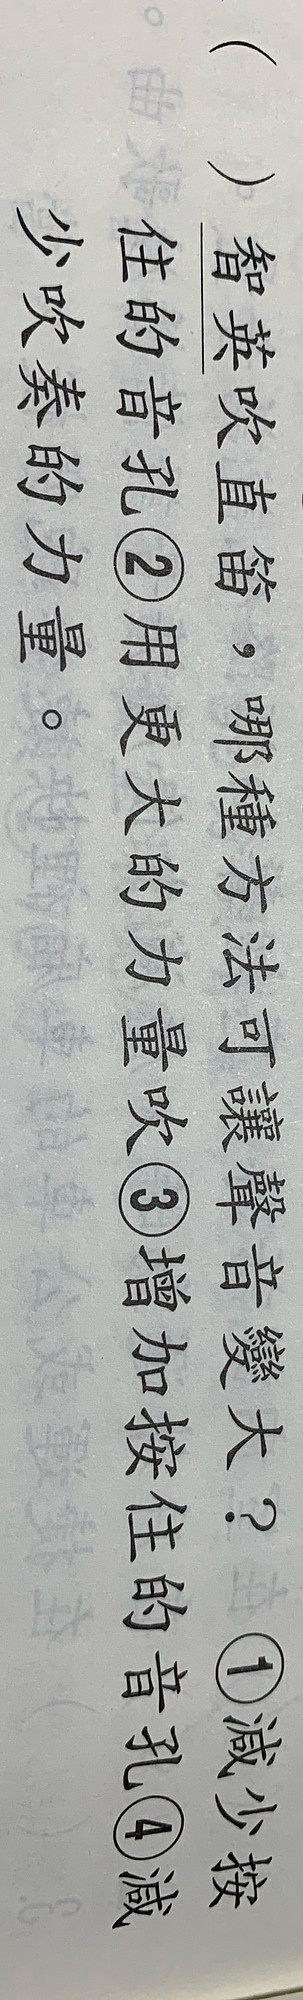 （　）智英吹直笛，哪種方法可讓聲音變大？　①減少按
住的音孔②用更大的力量吹③增加按住的音孔④減
少吹奏的力量。